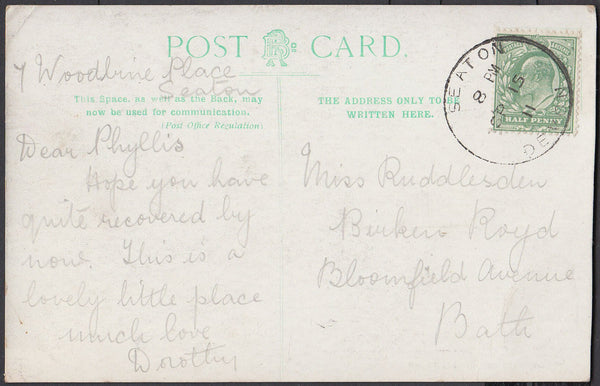 POST CARD.
7 Woodbine Place
Seaton
This Space, as well as the Back, may
now be used for communication.
(Post Office Regulation)
Dear Phyllis
Hope you have
quite recovered by
now. This is a
lovely little place
much love
Dorothy
THE ADDRESS ONLY TO BE
WRITTEN HERE.
Miss Ruddlesden
Royd
Bloomfield Avenue
Bath
SEATON
8 PM
15
11
DEVON
HALF PENNY